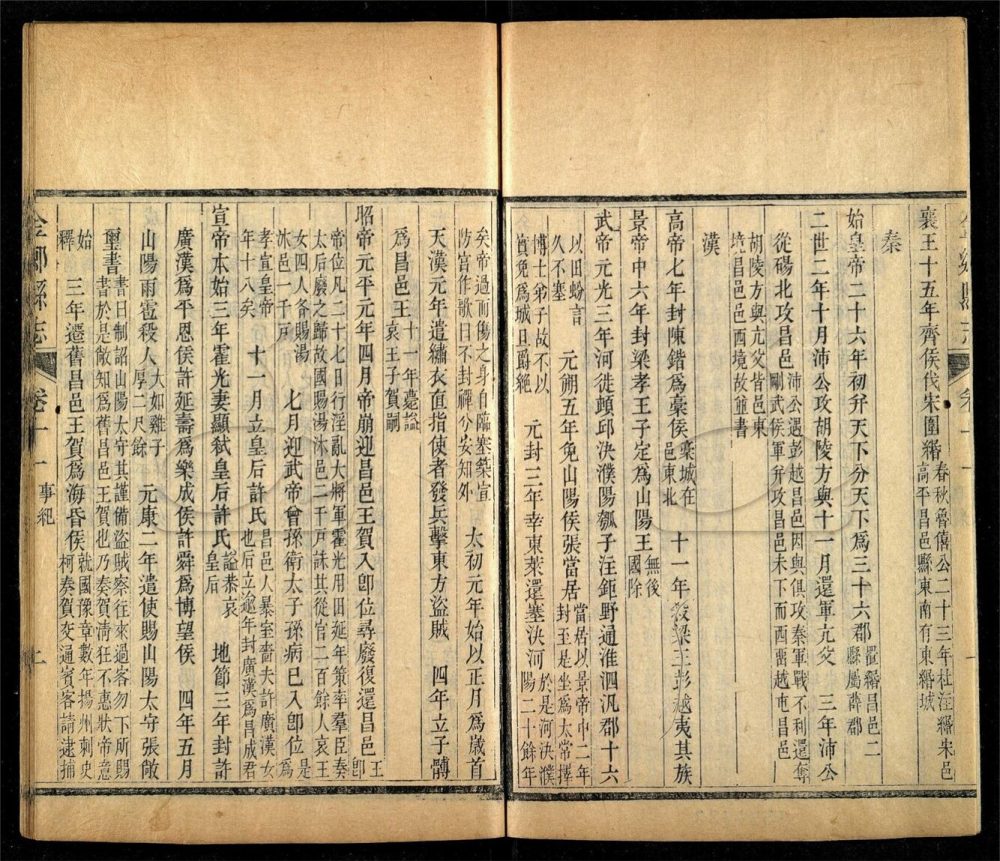 襄王十五年齊侯伐宋圍緡春秋魯僖公二十三年杜注緡宋邑
高平昌邑縣東南有東緡城
秦
始皇帝二十六年初弁天下分天下爲三十六郡置緡昌邑二
縣屬薛郡
二世二年十月沛公攻胡陵方與十一月還軍亢父 三年沛公
從碭北攻昌邑沛公遇彭越昌邑因與俱攻秦軍戰不利還奪
剛武侯軍幷攻昌邑未下而西酈越屯昌邑
胡陵方與亢父皆邑東
昌邑邑西境故竝書
漢
高帝七年封陳錯爲槀侯槀城在
邑東北
十一年殺梁王彭越夷其族
景帝中六年封梁孝王子定爲山陽王無後
國除
武帝元光三年河徙頓邱決濮陽瓠子注鉅野通淮泗汎郡十六
以田蚡言
久不塞
元朔五年免山陽侯張當居當居以景帝中二年
封至是坐爲太常擇
博士弟子故不以
實免爲城旦爵絕
元封三年幸東萊還塞決河於是河決濮
陽二十餘年
矣帝過而傷之身自臨塞築宣
防宮作歌曰不封禪兮安知外
太初元年始以正月爲歲首
天漢元年遣繡衣直指使者發兵擊東方盜賊 四年立子髆
爲昌邑王十一年薨諡
哀王子賀嗣
昭帝元平元年四月帝崩迎昌邑王賀入卽位尋廢復還昌邑王
卽
帝位凡二十七日行淫亂大將軍霍光用田延年策率羣臣奏
太后廢之歸故國賜湯沐邑二千戸誅其從官二百餘人哀王
女四人各賜湯
沐邑一千戸
七月迎武帝曾孫衛太子孫病已入卽位是
爲
孝宣皇帝
年十八矣
十一月立皇后許氏昌邑人暴室嗇夫許廣漢女
也后立逾年封廣漢爲昌成君
宣帝本始三年霍光妻顯弑皇后許氏諡恭哀
皇后
地節三年封許
廣漢爲平恩侯許延壽爲樂成侯許舜爲博望侯 四年五月
山陽雨雹殺人大如雞子
厚二尺餘
元康二年遣使賜山陽太守張敞
璽書書曰制詔山陽太守其謹備盜賊察往來過客勿下所賜
書於是敞知爲舊昌邑王賀也乃奏賀清狂不惠狀帝意
始
釋
三年遷舊昌邑王賀爲海昏侯就國豫章數年揚州刺史
柯奏賀交通賓客請逮捕
金鄉縣志 卷一 事紀